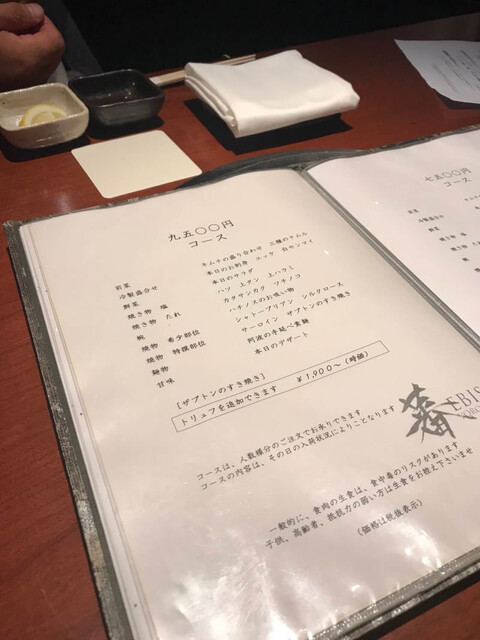 九五〇〇円
コース
前菜 キムチの盛り合わせ 三種のナムル
冷製盛合せ 本日のお刺身 ユッケ 白センマイ
鮮菜 本日のサラダ
焼き物 塩 ハツ 上タン 上ハラミ
焼き物 たれ カタサンカク ツチノコ
椀 ハチノスのお吸い物
焼物 希少部位 シャトーブリアン シルクロース
焼物 特撰部位 サーロイン ザブトンのすき焼き
麺物 阿波の手延べ素麺
甘味 本日のデザート
[ザブトンのすき焼き]
トリュフを追加できます ￥1,900～(時価)
コースは、人数様分のご注文でお承りできます
コースの内容は、その日の入荷状況によりことなります
蕃
一般的に、食肉の生食は、食中毒のリスクがあります
子供、高齢者、抵抗力の弱い方は生食をお控え下さいませ
(価格は税抜表示)
七五〇〇円
コース
前菜
冷製盛合せ
鮮菜
焼き物 塩
焼き物 たれ
椀